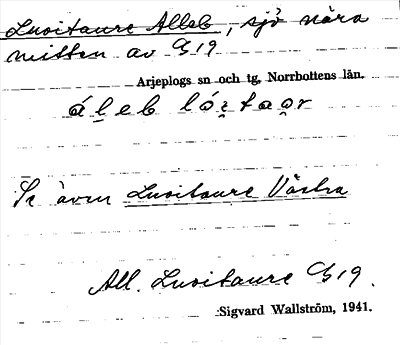 Luoitaure Alleb, sjö nära
mitten av G 19
Arjeplogs sn och tg, Norrbottens län.
áḷeb lói̯taọr
Se även Luoitaure Västra
All. Luoitaure G 19.
Sigvard Wallström, 1941.